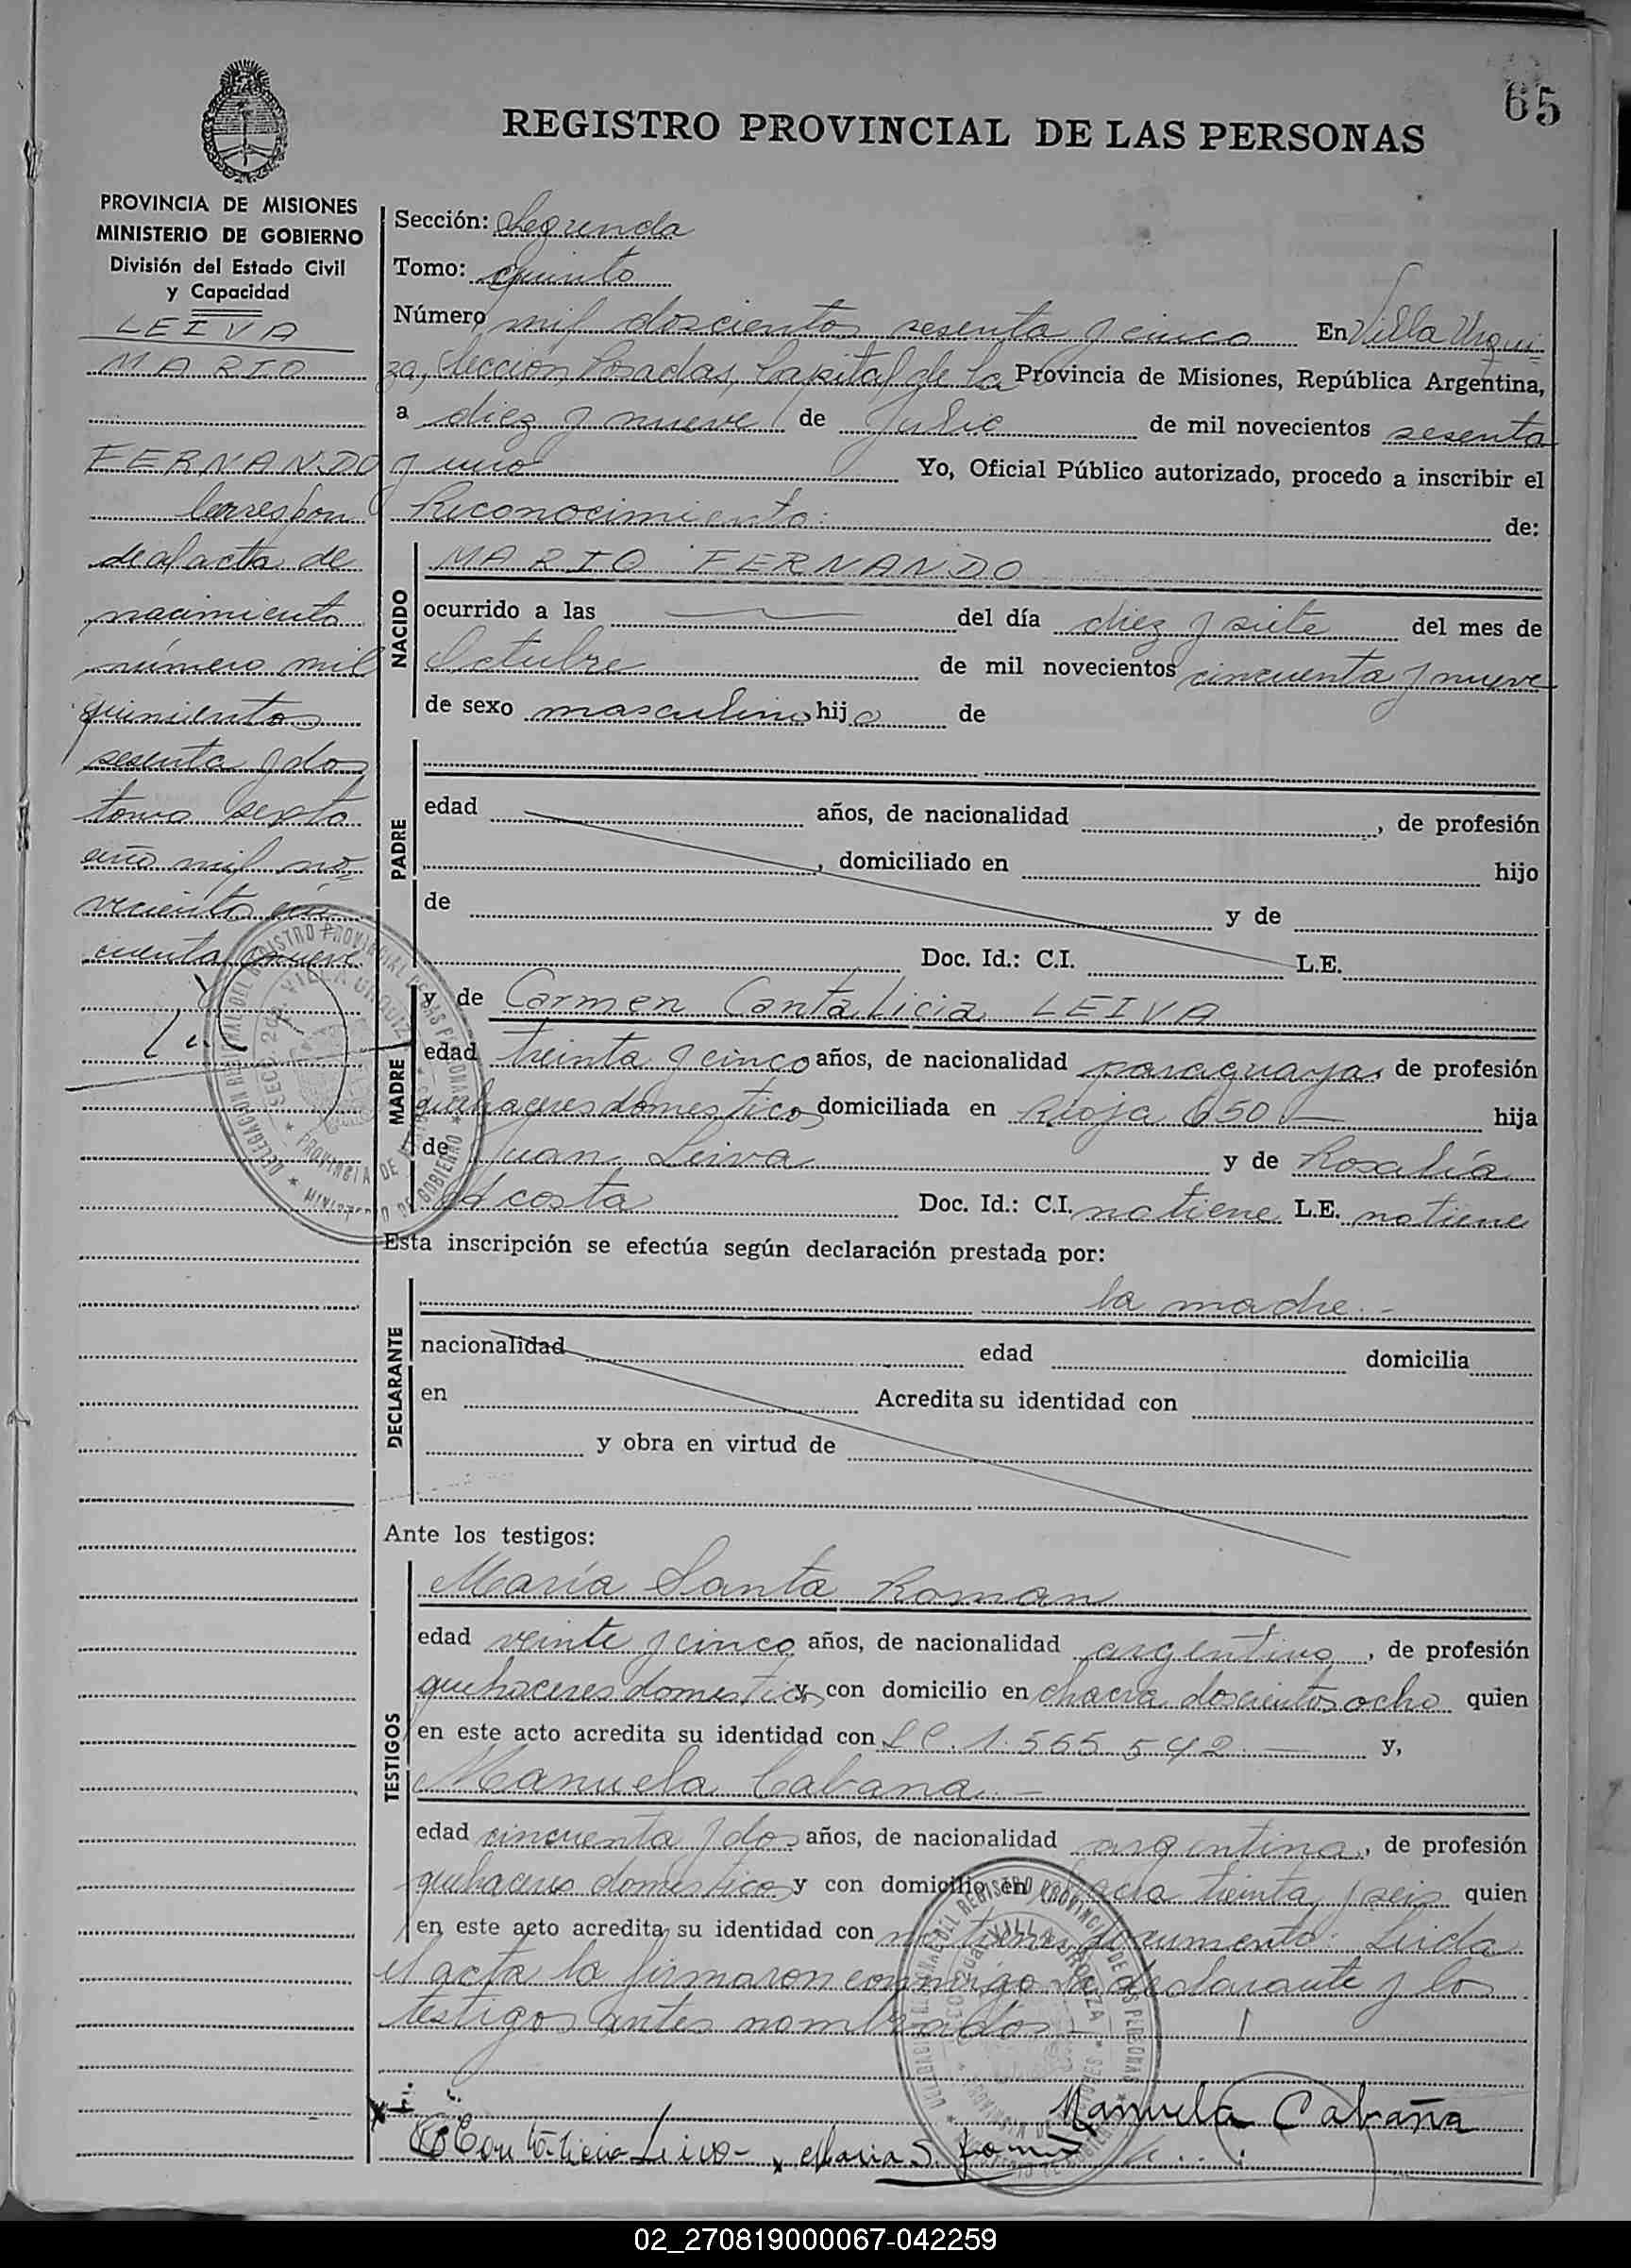 65
REGISTRO PROVINCIAL DE LAS PERSONAS
PROVINCIA DE MISIONES
MINISTERIO DE GOBIERNO
División del Estado Civil
y Capacidad
LEIVA
MARIO
FERNANDO
Correspon
de al acta de
nacimiento
número mil
quinientos
sesenta y dos
tomo sexto
año mil no=
veciento cin
cuenta y nueve
Sección: Segunda
Tomo: quinto
Número mil doscientos sesenta y cinco En Villa Urqui=
za, Sección Posadas, Capital de la Provincia de Misiones, República Argentina,
a diez y nueve de Julio de mil novecientos sesenta
y uno Yo, Oficial Público autorizado, procedo a inscribir el
Reconocimiento: de:
NACIDO
MARIO FERNANDO
ocurrido a las del día diez y siete del mes de
Octubre de mil novecientos cincuenta y nueve
de sexo masculino hijo de
PADRE
edad años, de nacionalidad , de profesión
, domiciliado en hijo
de y de
Doc. Id.: C.I. L.E.
MADRE
y de Carmen Cantalicia LEIVA
edad treinta y cinco años, de nacionalidad paraguaya, de profesión
quehaceres domesticos domiciliada en Rioja 650 — hija
de Juan Leiva y de Rosalía
Acosta Doc. Id.: C.I. no tiene L.E. no tiene
Esta inscripción se efectúa según declaración prestada por:
DECLARANTE
la madre.-
nacionalidad edad domicilia
en Acredita su identidad con
y obra en virtud de
Ante los testigos:
TESTIGOS
María Santa Roman
edad veinte y cinco años, de nacionalidad argentina, de profesión
quehaceres domesticos y con domicilio en chacra doscientos ocho quien
en este acto acredita su identidad con L C. 1.565.542.— y,
Manuela Cabana.—
edad cincuenta y dos años, de nacionalidad argentina, de profesión
quehaceres domesticos y con domicilio en chacra treinta y seis quien
en este acto acredita su identidad con no tiene documento. Leida
el acta la firmaron conmigo la declarante y los
testigos antes nombrados.-
Manuela Cabaña
Cantalicia Leiva- x Maria S. Roman
02_270819000067-042259